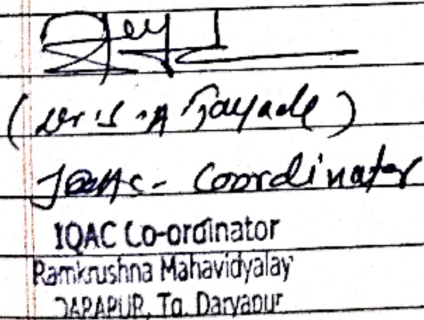 (Dr. S. A. Tayade)
IQAC - Coordinator
IQAC Co-ordinator
Ramkrushna Mahavidyalay
DARAPUR, Tq. Daryapur